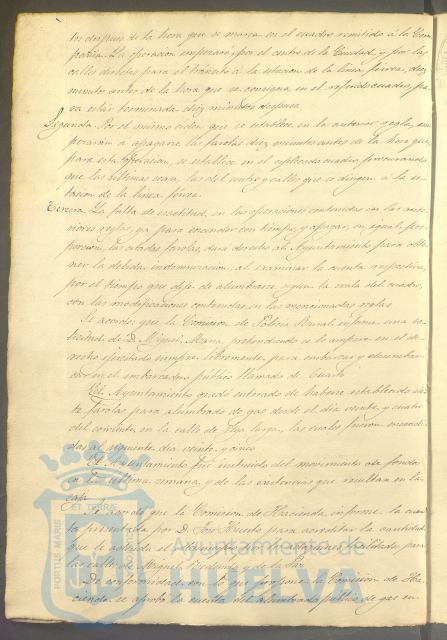 tos despues de la hora que se marca en el cuadro remitido á la Com
pañia. La operacion empezará por el centro de la Ciudad y por las
calles de estas para el tránsito á la estacion de la linea férrea, diez
minutos antes de la hora que se consigna en el referido cuadro, pa
ra estar terminada diez minutos despues.
Segunda. Por el mismo orden que se establece en la anterior regla, em
pezarán á apagarse las farolas diez minutos antes de la hora que,
para esta operacion, se establece en el esplicado cuadro, procurando
que las últimas sean, las del centro y calles que se dirigen á la es
tacion de la linea férrea.
Tercera. La falta de exactitud, en las operaciones contenidas en las ante
riores reglas, ya para encender con tiempo, y apagar, en igual pro
porcion, las citadas farolas, dará derecho al Ayuntamiento para obte
ner la debida indemnizacion, al examinar la cuenta respectiva,
por el tiempo que deje de alumbrarse segun la escala del cuadro,
con las modificaciones contenidas en las mencionadas reglas.
Se acordó: que la Comision de Policia Rural informe una so
licitud de D. Miguel Mora, pretendiendo se le ampare en el de
recho ejercitado siempre, libremente, para embarcar y desembar
car en el embarcadero público llamado de
El Ayuntamiento quedó enterado de haberse establecido sie
te farolas para alumbrado de gas desde el dia veinte y cuatro
del corriente, en la calle de larga, las cuales fueron encendi
das al siguiente dia veinte y cinco.
El Ayuntamiento fué instruido del movimiento de fondos
en la última semana, y de las existencias que resultan en la
caja.
Se acordó que la Comision de Hacienda, informe la cuen
ta presentada por D. José Huerto para acreditar la cantidad
que se adeuda el
las calles de Miguel Redondo y de la Paz.
De conformidad con lo que propone la Comision de Ha
cienda, se aprobó la cuenta del alumbrado público de gas en
PORTUS MARIS
ET TERRE
CUSTODIA
Ayuntamiento de
HUELVA